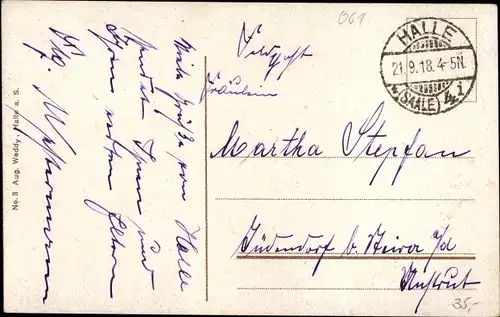 061
HALLE
21.9.18.4-5N.
* (SAALE) 4 i
Feldpost
Fräulein
Martha Stepfan
Jüdendorf b.
Unstrut
35,-
Viele Grüße von Halle
sendet Ihnen und
Ihren Eltern
No. 3 Aug. Weddy, Halle a. S.